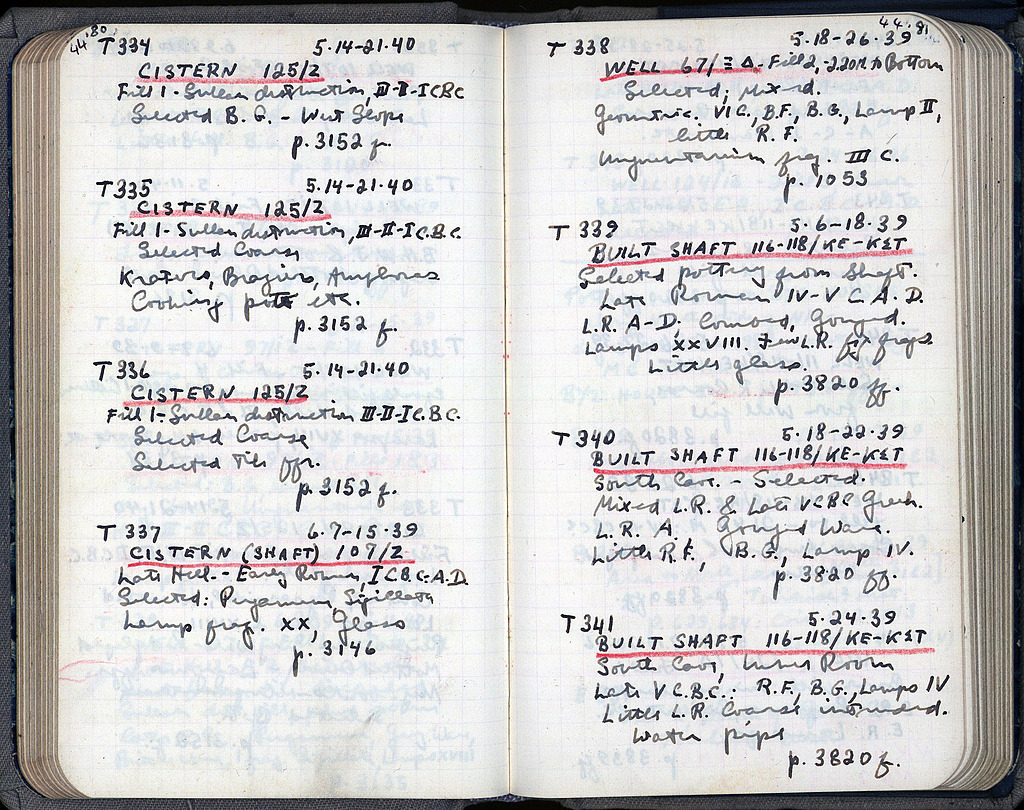 44.80
T 334 5.14-21.40
CISTERN 125/2
Fill 1 - Sullan destruction, III-II-I C.B.C
Selected B.G. - West Slope
p. 3152 f.
T 335 5.14-21.40
CISTERN 125/2
Fill 1 - Sullan destruction, III-II-I C.B.C.
Selected Coarse
Kraters, Braziers, Amphoras
Cooking pots etc.
p. 3152 f.
T 336 5.14-21.40
CISTERN 125/2
Fill 1 - Sullan destruction III-II-I C.B.C.
Selected Coarse
Selected Tile ffr.
p. 3152 f.
T 337 6.7-15.39
CISTERN (SHAFT) 107/2
Late Hell. - Early Roman, I C.B.C.-A.D.
Selected: Pergamum, Sigillata
Lamp frag. XX, Glass
p. 3146
44.81
T 338 5.18-26.39
WELL 67/ΞΔ - Fill 2, -2.20 m to Bottom
Selected; Mixed.
Geometric. VI C., B.F., B.G., Lamp II,
little R.F.
Unguentarium frag. III C.
p. 1053
T 339 5.6-18.39
BUILT SHAFT 116-118/KE-KΣT
Selected pottery from Shaft.
Late Roman IV-V C.A.D.
L.R. A-D, Combed, Gouged.
Lamps XXVIII. Few L.R. frags.
Little glass.
p. 3820 ff.
T 340 5.18-22.39
BUILT SHAFT 116-118/KE-KΣT
South Cave. - Selected.
Mixed L.R. & Late V C B C Greek.
L.R. A. Gouged Ware.
Little R.F., B.G., Lamp IV.
p. 3820 ff.
T 341 5.24.39
BUILT SHAFT 116-118/KE-KΣT
South Cave, Inner Room
Late V C.B.C.: R.F., B.G., Lamps IV
Little L.R. Coarse intruded.
Water pipe
p. 3820 f.